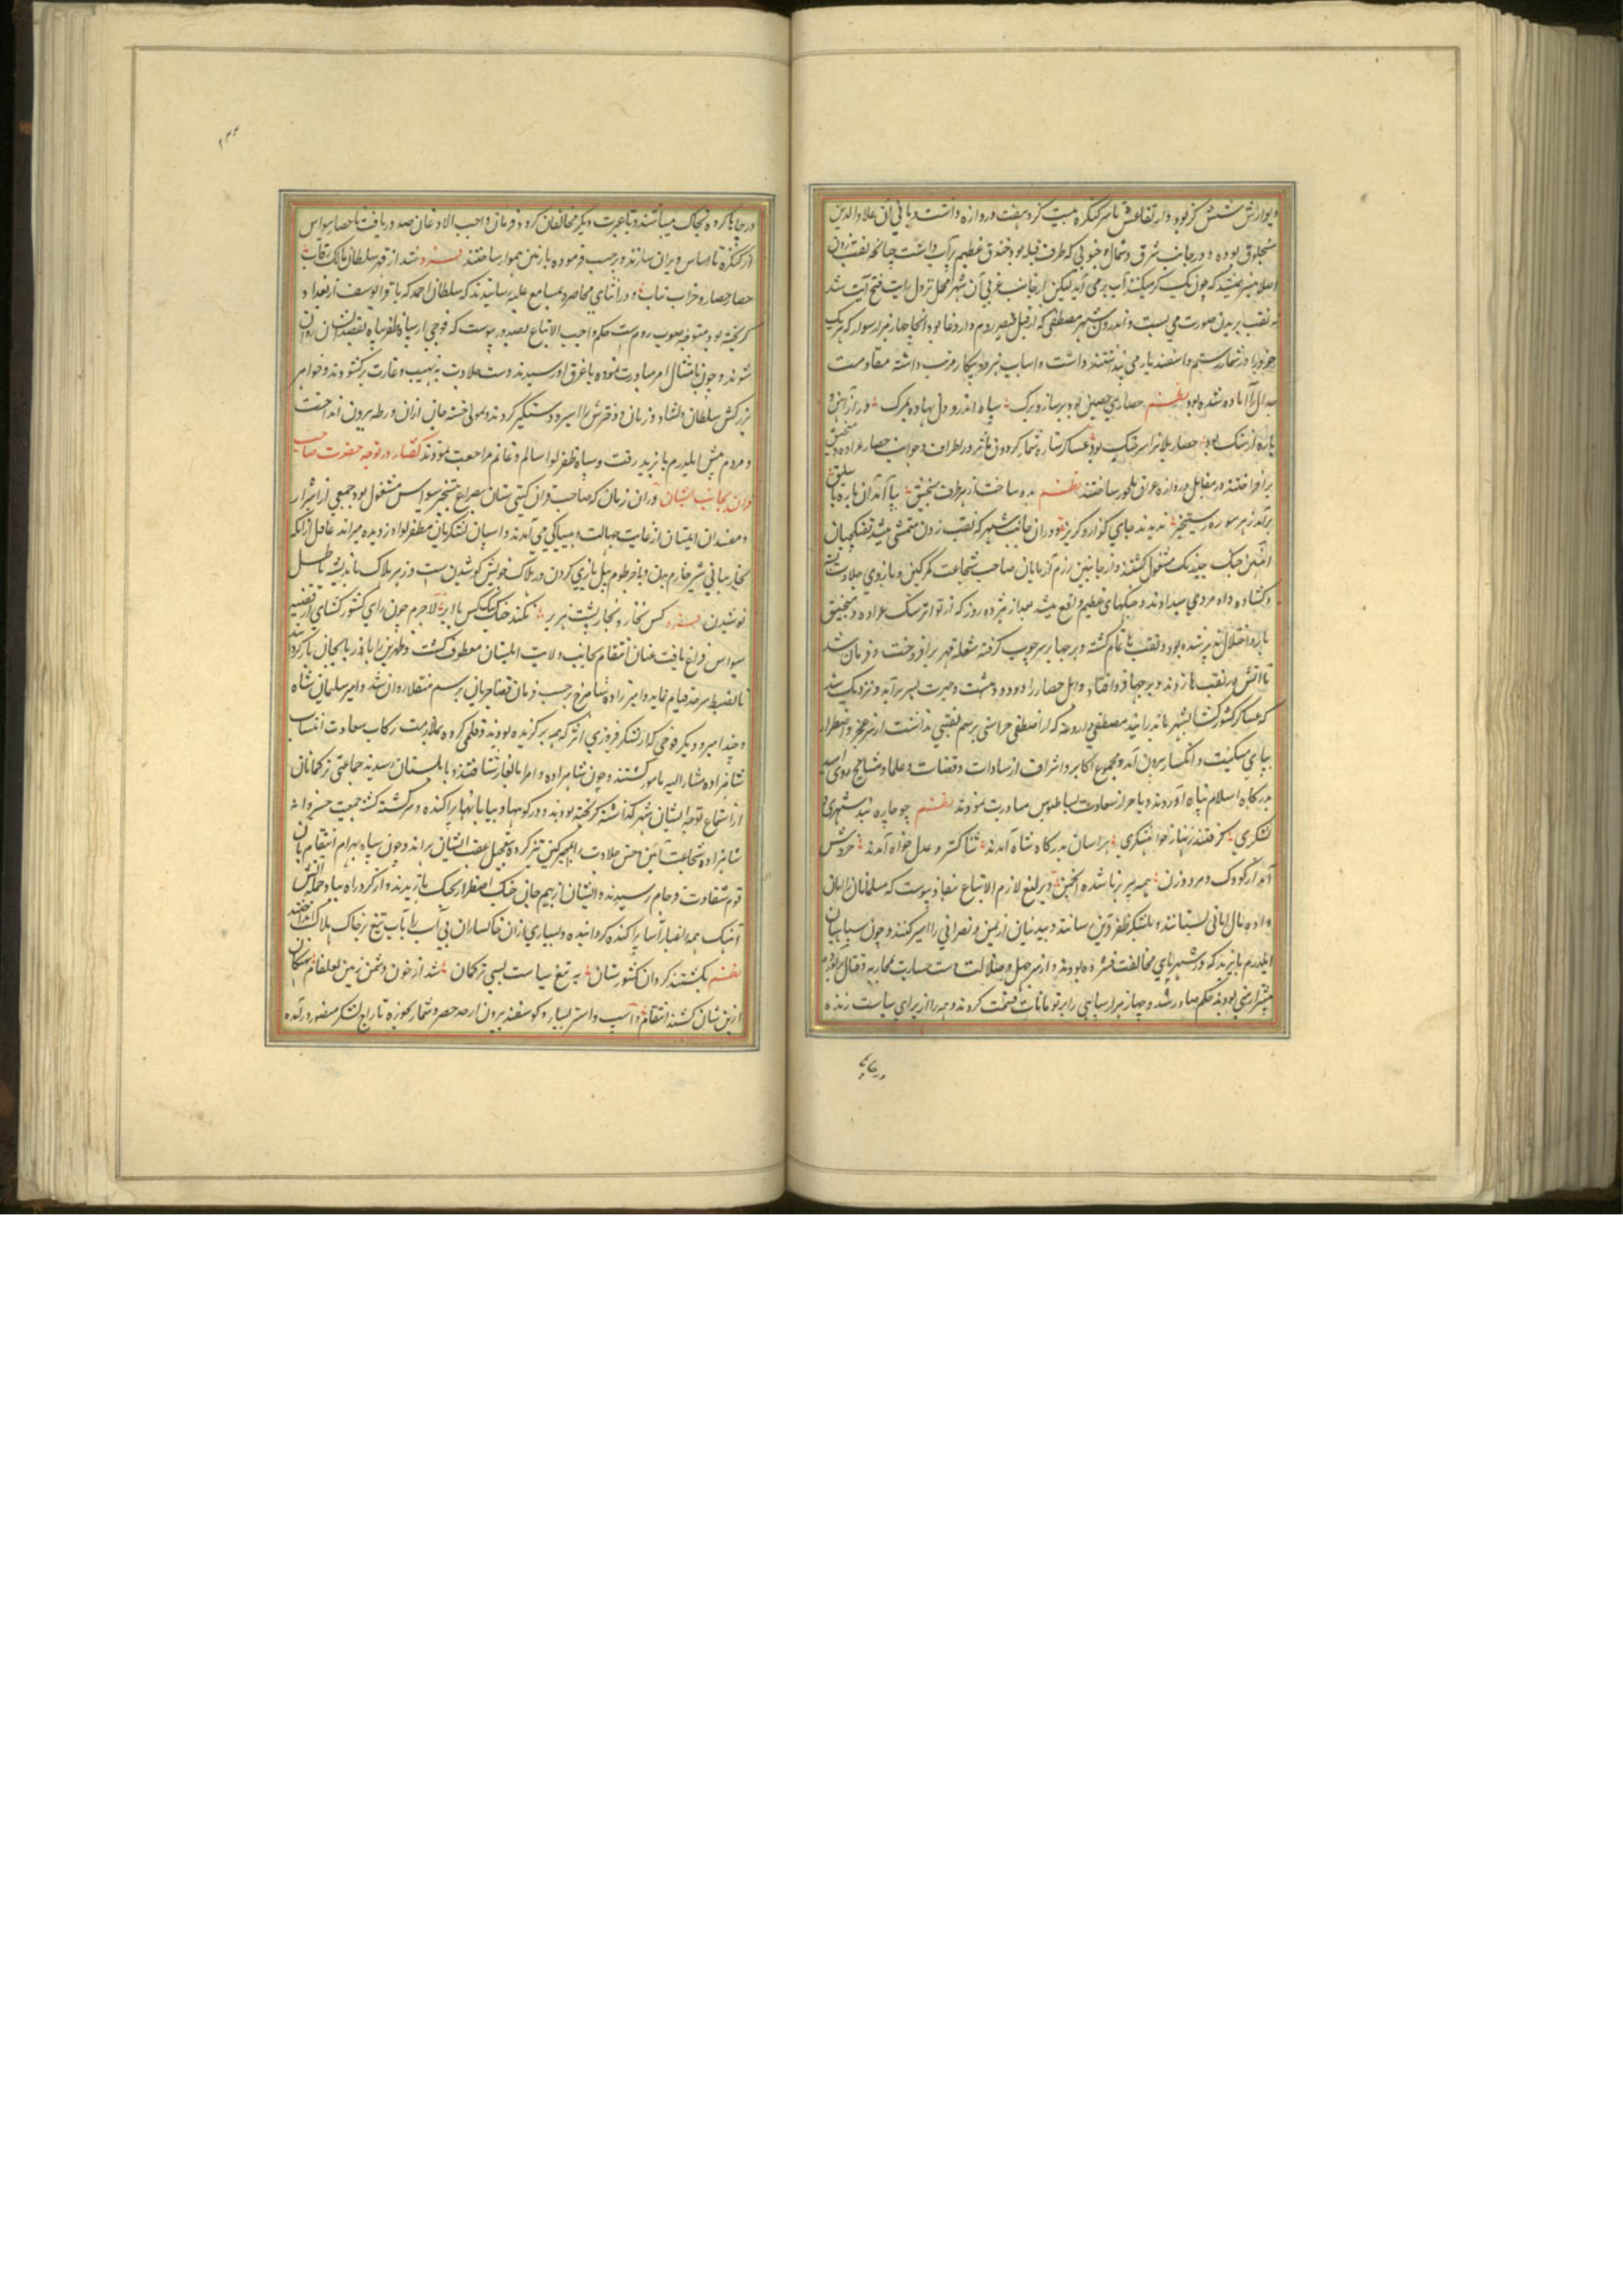 دیوارش شش گز بود و ارتفاعش تا سر کنکره بیست گز و هفت دروازه داشت و بانی آن علاءالدین
سلجوق بوده و در جانب شرق و شمال و جنوبی که طرف قبله بود خندق عظیم پرآب داشت چنانچه نقب زدن
اصلا میسر نمیشد که چون یک گز میکندند آب برمی آید لیکن از جانب غربی آن شهر که محل نزول رایت فتح آیت شد
نقب بریدن صورت می بست و اندرون شهر مصطفی که از قبل قیصر روم داروغا بود انجا چهار هزار سوار که هر یک
خود را در شمار رستم و اسفندیار می پنداشتند داشت و اسباب نبرد و پیکار مرتب داشته مقاومت
جدال را آماده شده بود نظم حصاری حصین بود پر ساز و برک سپاه اندرو دل نهاده بمرک در از آهن و
باره از سنک بود حصار بلا را سر جنک بود عساکر ستاره شمار کردون مآثر در اطراف و جوانب حصار عراده و منجنیق
برافراختند و در مقابل دروازه عراق ملجور ساختند نظم بدو ساخت از هر طرف منجنیق بیامد آن باره
برآمد ز هر سو ره رستخیز ندیدند جای کذار و کریز و در آن جانب شهر که نقب زدن متمشی میشد نقبچیان
آهنین چنک بی درنک مشغول کشتند و از جانبین رزم آزمایان صاحب شجاعت کمر کین و بازوی جلادت بسته
و کشاده داد مردی میدادند و جنکهای عظیم واقع میشد بعد از هژده روز که از تواتر سنک عراده و منجنیق
بارو اختلال پذیر شده بود و نقب ها تمام کشته و برجها بر سر چوب کرفته شعله قهر برافروخت و فرمان شد
تا آتش در نقب ها زدند و برجها فرو افتاد و اهل حصار را دود دهشت و حیرت بسر برآید و نزدیک شد
که عساکر کشورکشا بشهر درآیند مصطفی داروغه که از اصطفی جز اسمی برسم نصیبی نداشت از سر عجز و اضطرار
بپای مسکنت و انکسار بیرون آمد و مجموع اکابر و اشراف از سادات و قضات و علما و مشایخ روی امید
بدرکاه اسلام پناه آوردند و باحراز سعادت بساط بوس مبادرت نمودند نظم چو چاره نبد شهری و
لشکری کرفتند زنهار خواهشکری هراسان بدرکاه شاه آمدند ثنا کستر و عدل خواه آمدند خروش
آمد از کودک و مرد و زن همه پیر برنا شده انجمن و یرلیغ لازم الاتباع نفاذ پیوست که مسلمانان را امان
داده مال امانی بستانند و بلشکر ظفر قرین رسانند و بیدینان ارمن و نصرانی را اسیر کنند و چون سپاهیان
ایلدرم بایزید که در شهر پای مخالفت فشرده بودند و از سر جهل و ضلالت دست جسارت بمحاربه و قتال برآورده
هزار نفر بودند حکم صادر شد و چهار هزار سپاهی را بر تومانات قسمت کردند و همه را از برای سیاست زنده
در چاها
در چاها کرده بخاک میباشتند و تا عبرت دیکر مخالفان کردد و فرمان واجب الاذعان صدور یافت تا حصار سواس
از کنکره تا اساس ویران سازند و برحسب فرموده با زمین هموار ساختند فرد شد از قهر سلطان مالک رقاب
حصار حصار و خراب تباب و در اثنای محاصره بمسامع علیه رسانیدند که سلطان احمد که با قرا یوسف از بغداد
کریخته بود متوجه صوب روم است حکم واجب الاتباع بصدور پیوست که فوجی از سپاه ظفر پناه بقصد ایشان روان
شوند و چون بامتثال امر مبادرت نموده باغرق او رسیدند دست جلادت بنهیب و غارت برکشودند و خواهر
بزرکش سلطان دلشاد و زنان و دخترش را اسیر و دستکیر کردند و مولی خسته جان ازان ورطه بیرون انداخت
و مردم پیش ایلدرم بایزید رفت و سپاه ظفر لوا سالم و غانم مراجعت نمودند کفتار در توجه حضرت صاحب
قران بجانب ابلستان در ان زمان که صاحب قران کیتی ستان بصراع تسخیر سواس مشغول بود جمعی از اشرار
و مفسدان ابلستان از غایت جهالت و بیباکی می آمدند و اسپان لشکریان مظفر لوا دزدیده میراند غافل از انکه
بخار بنانی شیر خاریدن و با خرطوم پیل بازی کردن در هلاک خویش کوشیدن است و زهر هلاک باندیشه باطل
نوشیدن فرد کس نخارد بخار پشت هزبر نکند جنک کبک کس با ابر لاجرم چون رای کشورکشای از قضیه
سواس فراغ یافت عنان انتقام بجانب ولایت ابلستان معطوف کشت و ظهرتن را باذربایجان باز کردانید
تا بضبط سرحد قیام نماید و امیرزاده شاهرخ برحسب فرمان قضا جریان برسم منقلا روان شد و امیر سلیمان شاه
و چند امیر و دیکر فوجی که از لشکر فیروزی اثر که همه برکزیده بودند و قلمی کرده ملازمت رکاب سعادت انتساب
شاهزاده مشار الیه مامور کشتند و چون شاهزاده و امرا بالغار شتافتند و بابلستان رسیدند جماعتی ترکمانان
از استماع توجه ایشان شهر کذاشته کریخته بودند و در کوهها و بیابانها پراکنده و سرکشته کشته جمعیت خسروانه
شاهزاده شجاعت آیین و حسن جلادت را بمهمیز کین تیز کرده بتعجیل عقب ایشان براند و چون سپاه بهرام انتقام بان
قوم شقاوت فرجام رسیدند و ایشان از بیم جان بجنک اضطرار بجنک بازیدند و از کرد راه سپاه حماس آتش
آهنک همه را غبار آسا پراکنده کردانیده و بسیاری ازان خاکساران بی آب را بآب تیغ بر خاک هلاک انداختند
نظم بکشتند کردان کشورستان به تیغ سیاست بسی ترکمان شد از خون دشمن زمین لعلفام سکان
ازین شان کشند انتقام و اسپ و استر بسیار و کوسفند بیرون از حد حصر و شمار بحوزه تاراج لشکر منصور درآمده